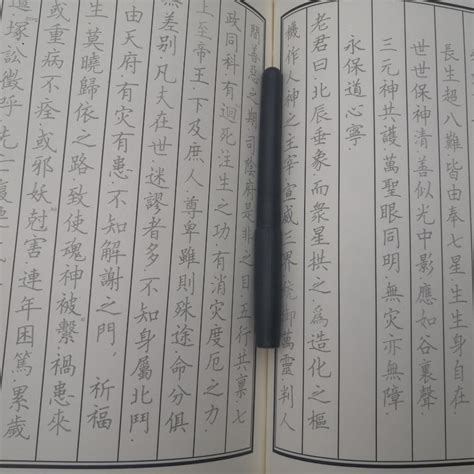 長生超八難皆由奉七星生生身自在
世世保神清善似光中影應如谷裏聲
三元神共護萬聖眼同明無灾亦無障
永保道心寧
老君曰.北辰垂象而衆星拱之.爲造化之樞
機作人神之主宰宣威三界統御萬靈.判人
間善惡之期.司陰府是非之目.五行共禀.七
政同科.有迴死注生之功.有消灾度厄之力.
上至帝王.下及庶人.尊卑雖則殊途.命分俱
無差別.凡夫在世.迷謬者多.不知身屬北斗.
由天府有灾有患.不知解謝之門.祈福
生莫曉歸依之路致使魂神被繫.禍患來
或重病不痊.或邪妖尅害.連年困篤累歲
塚訟徵呼先亡復